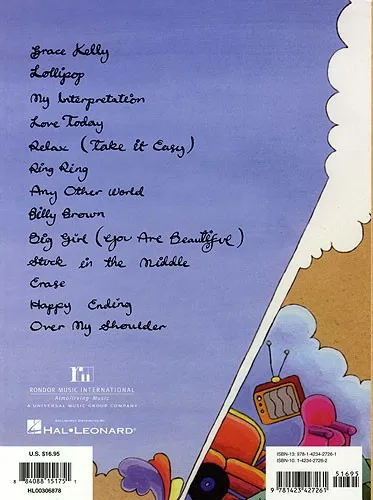 Grace Kelly
Lollipop
My Interpretation
Love Today
Relax (Take it Easy)
Ring Ring
Any Other World
Billy Brown
Big Girl (you Are Beautiful)
Stuck in the Middle
Erase
Happy Ending
Over My Shoulder
RONDOR MUSIC INTERNATIONAL
Almo/Irving Music
A UNIVERSAL MUSIC GROUP COMPANY
HAL•LEONARD®
U.S. $16.95
8 84088 15175 1
HL00306878
ISBN-13: 978-1-4234-2726-1
ISBN-10: 1-4234-2726-2
51695
9 781423 427261